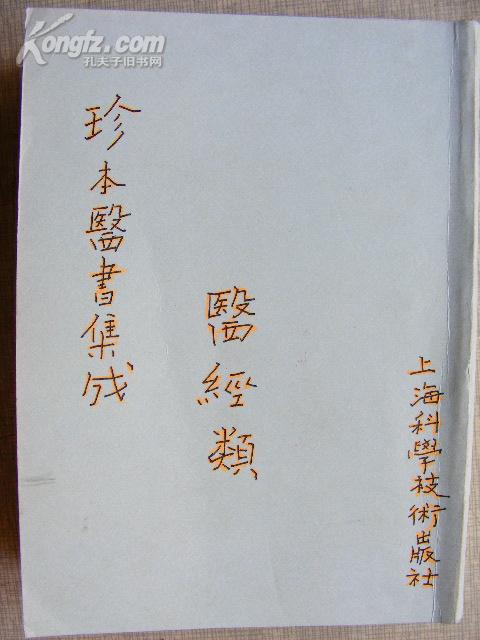 Kongfz.com
孔夫子旧书网
珍本醫書集成
醫經類
上海科學技術出版社